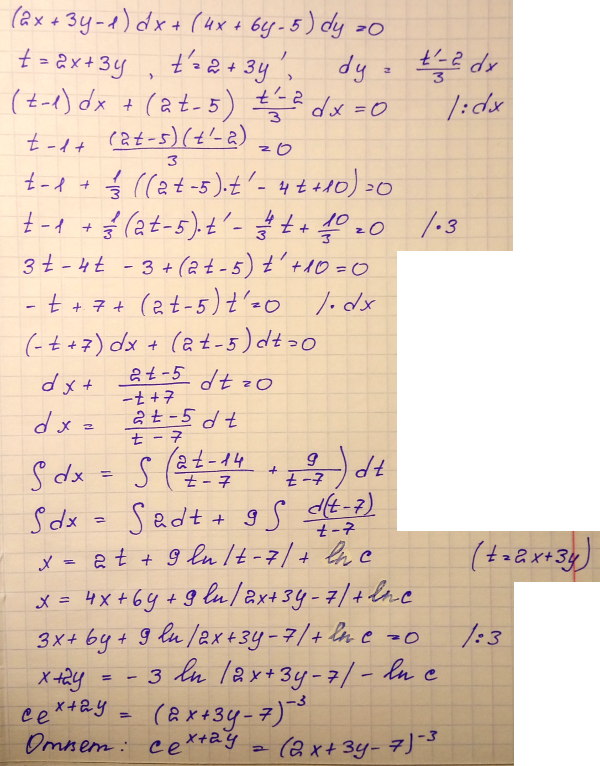 (2x+3y-1)dx+(4x+6y-5)dy=0
t=2x+3y, t'=2+3y', dy = \frac{t'-2}{3} dx
(t-1)dx + (2t-5) \frac{t'-2}{3} dx = 0 /:dx
t-1+ \frac{(2t-5)(t'-2)}{3} = 0
t-1 + \frac{1}{3} ((2t-5)·t' - 4t+10) = 0
t-1 + \frac{1}{3} (2t-5)·t' - \frac{4}{3} t + \frac{10}{3} = 0 /·3
3t-4t -3+(2t-5)t'+10=0
-t+7+(2t-5)t'=0 /·dx
(-t+7)dx+(2t-5)dt=0
dx+ \frac{2t-5}{-t+7} dt=0
dx = \frac{2t-5}{t-7} dt
∫dx = ∫(\frac{2t-14}{t-7} + \frac{9}{t-7}) dt
∫dx = ∫2dt + 9∫ \frac{d(t-7)}{t-7}
x = 2t + 9ln|t-7| + ln c (t=2x+3y)
x = 4x+6y+9ln|2x+3y-7|+ln c
3x+6y+9ln|2x+3y-7|+ln c =0 /:3
x+2y = -3 ln |2x+3y-7| - ln c
ce^{x+2y} = (2x+3y-7)^{-3}
Ответ: ce^{x+2y} = (2x+3y-7)^{-3}